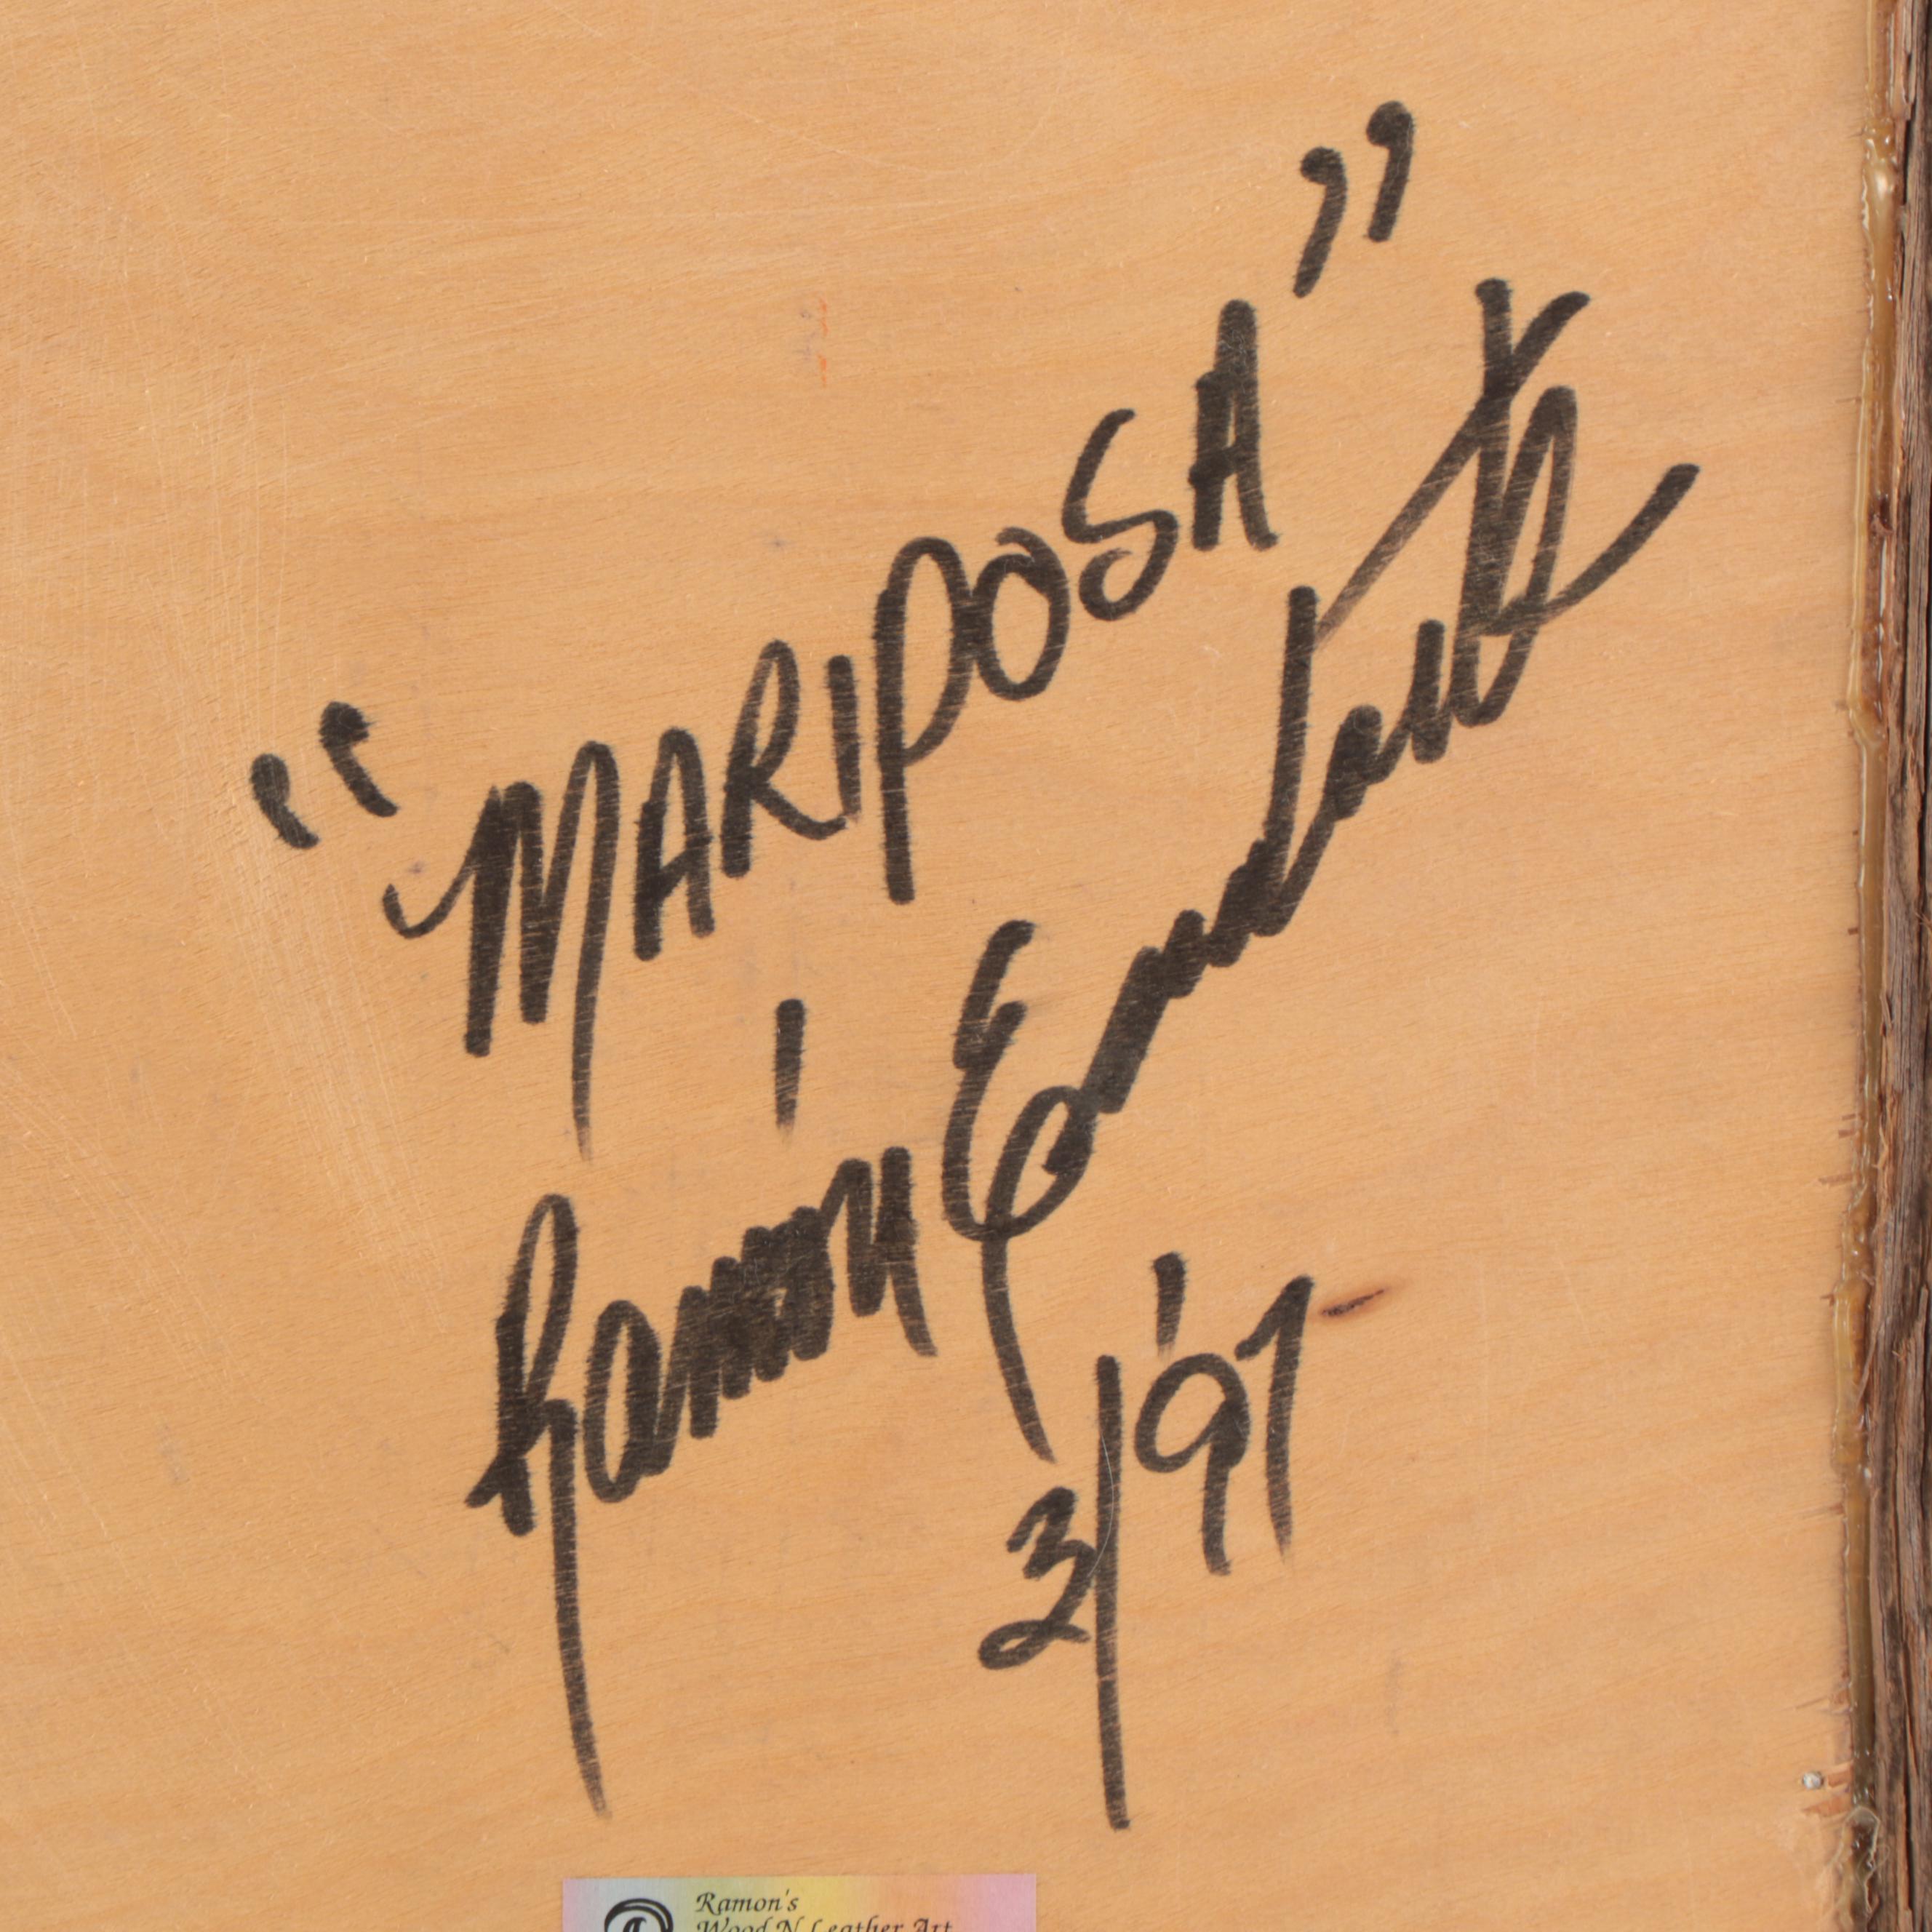 "MARIPOSA"
Ramón
3/'97
Ramon's
Wood N Leather Art